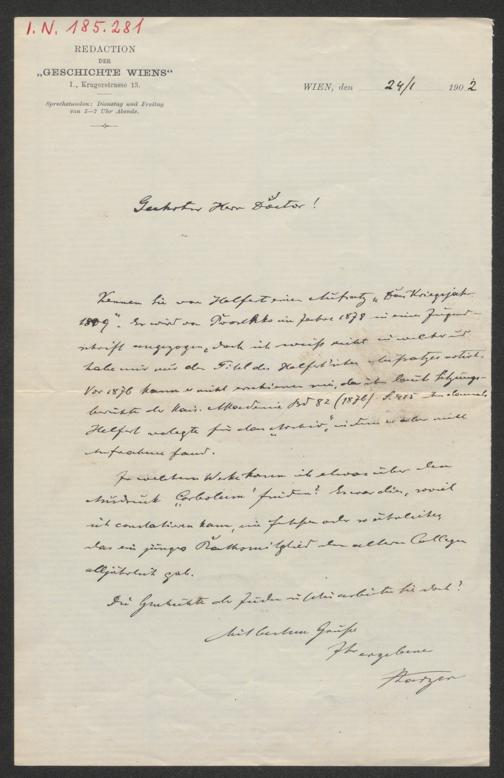 I.N. 185.281
REDACTION
DER
„GESCHICHTE WIENS“
I., Krugerstrasse 13.
Sprechstunden: Dienstag und Freitag
von 5–7 Uhr Abends.
WIEN, den 24/1 1902
Geehrter Herr Doctor!
Kennen Sie von Helfert einen Aufsatz „Das Kriegsjahr
1809“. Er wird von im Jahre 1878 in einer Jugend-
schrift angezogen, doch ich weiß nicht in welcher u
habe mir nur den Titel des Helfert'schen Aufsatzes notirt.
Vor 1876 kann er nicht erschienen sein, da ihn laut Sitzungs-
berichte der kais. Akademie Bd 82 (1876) S. 405 damals
Helfert vorlegte für das „Archiv“, in dem er aber nicht
Aufnahme fand.
In welchem Werke kann ich etwas über den
Ausdruck finden? Es war dies, soviel
ich constatiren kann, ein Essen oder
das ein junges Rathsmitglied den älteren Collegen
alljährlich gab.
Die Geschichte der Juden arbeiten Sie doch?
Mit besten Grüßen
Ihr ergebener
Starzer